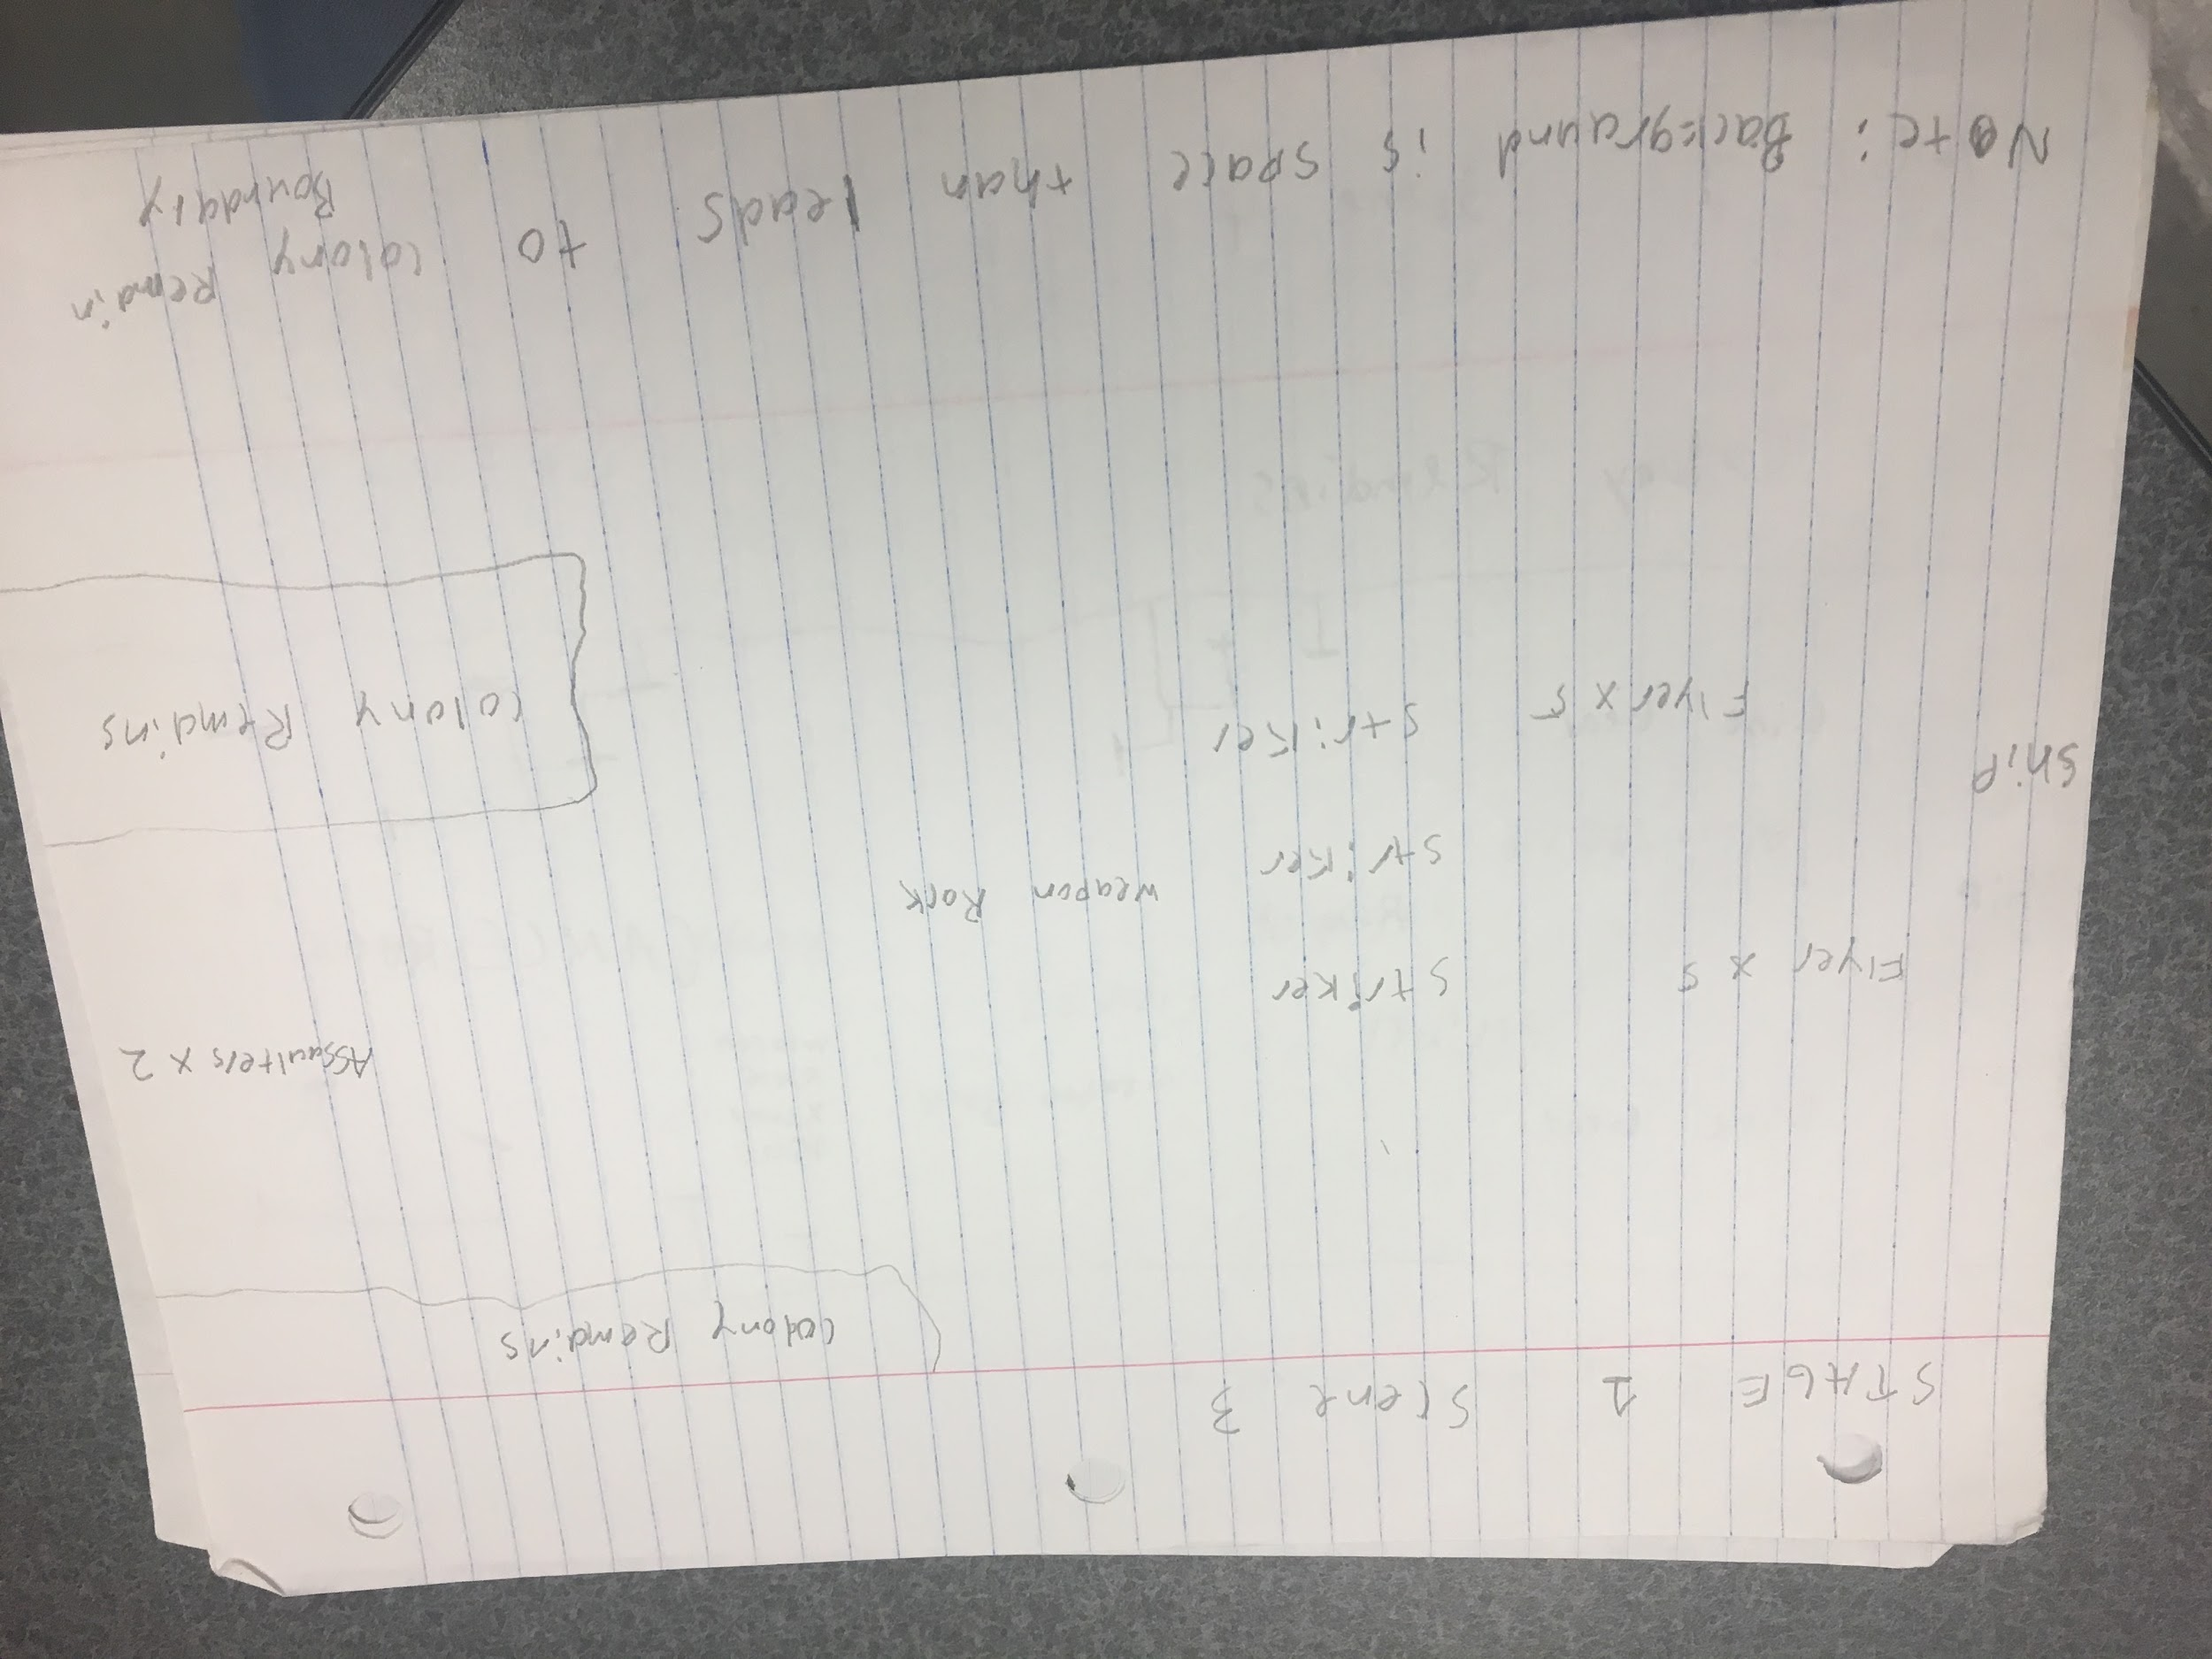 STAGE 1 Scene 3
Colony Remains
Assaulters x 2
Flyer x 5
Striker
Striker
Weapon Rock
Ship
Flyer x 5
Striker
Colony Remains
Note: Background is space than leads to Colony Remain
Boundary